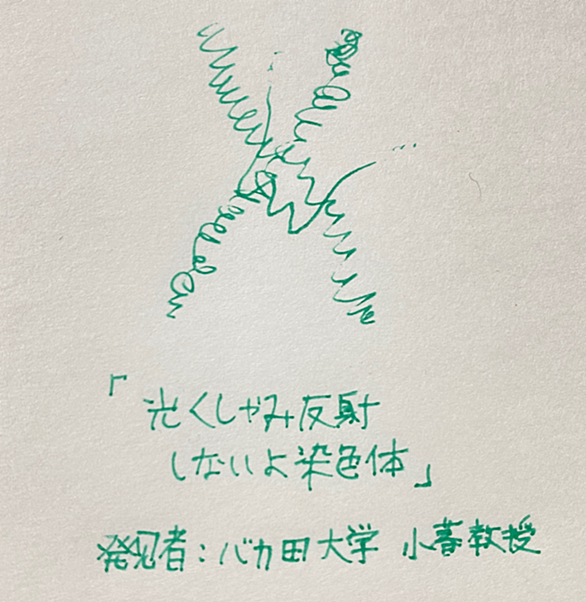 「光くしゃみ反射
しないよ染色体」
発見者：バカ田大学 小暮教授